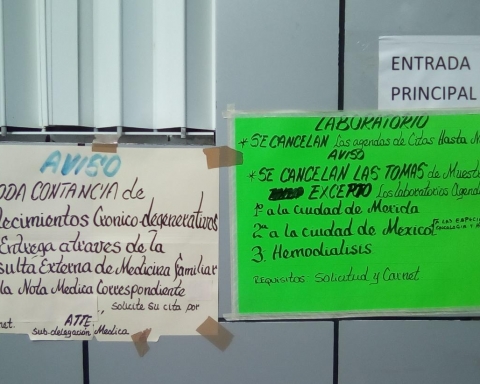 AVISO
ODA CONTANCIA de
decimientos Cronico degenerativos
Entrega atraves de la
sulta Externa de Medicina Familiar
la Nota Medica Correspondiente
Solicite su cita por
net.
ATTE:
sub.delegación Medica
LABORATORIO
* SE CANCELAN Las agendas de Citas Hasta N
AVISO
* SE CANCELAN LAS TOMAS de Muest
EXCEPTO Los laboratorios Agend
1º a la Ciudad de Merida
2ª a la ciudad de Mexico
3. Hemodialisis
REQUISITOS: Solicitud y Carnet
ENTRADA
PRINCIPAL